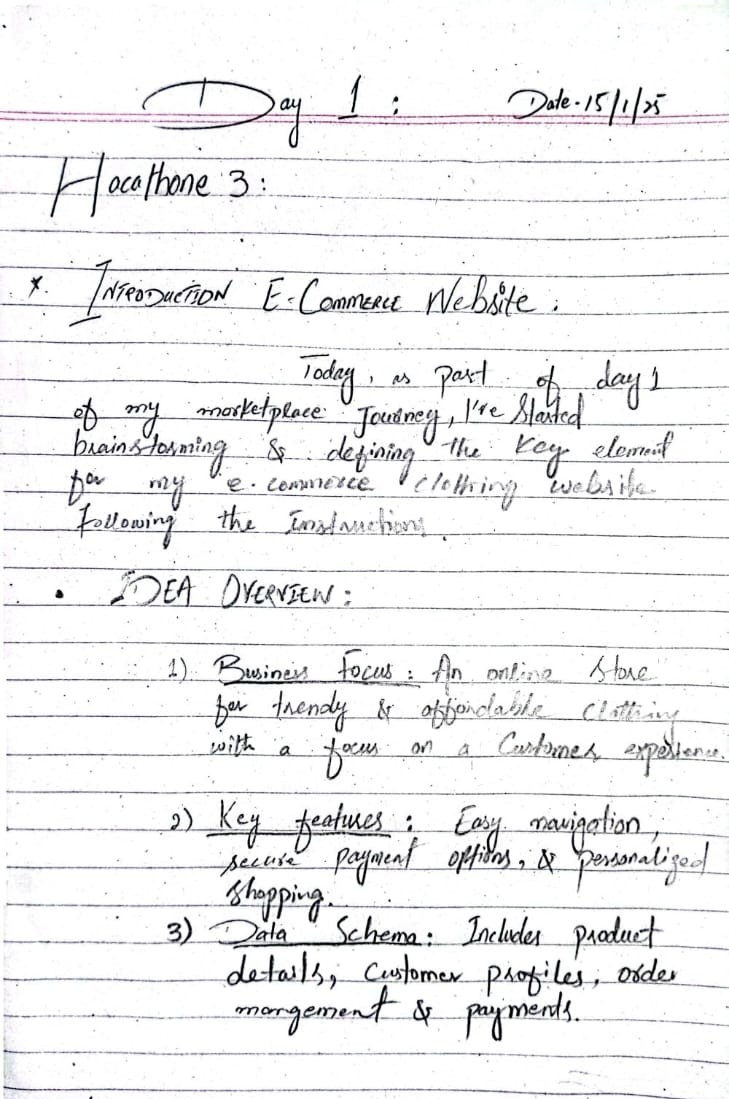 Day 1 : Date-15/1/25
Hacathone 3:
* INTRODUCTION E-COMMERCE Website.
Today, as part of day 1
of my marketplace Journey, I've Started
brainstorming & defining the key element
for my e-commerce clothring website
Following the Instructions.
• IDEA OVERVIEW:
1) Business Focus: An online store
for trendy & affordable Clothing
with a focus on a Customer experience.
2) Key features: Easy navigation,
secure payment options, & personalized
shopping.
3) Data Schema: Includes product
details, customer profiles, order
mangement & payments.